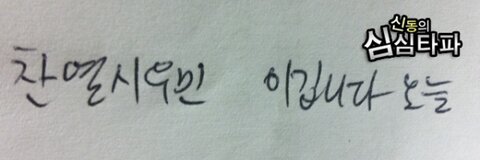 신동의
심심타파
찬열시우민 이깁니다 오늘